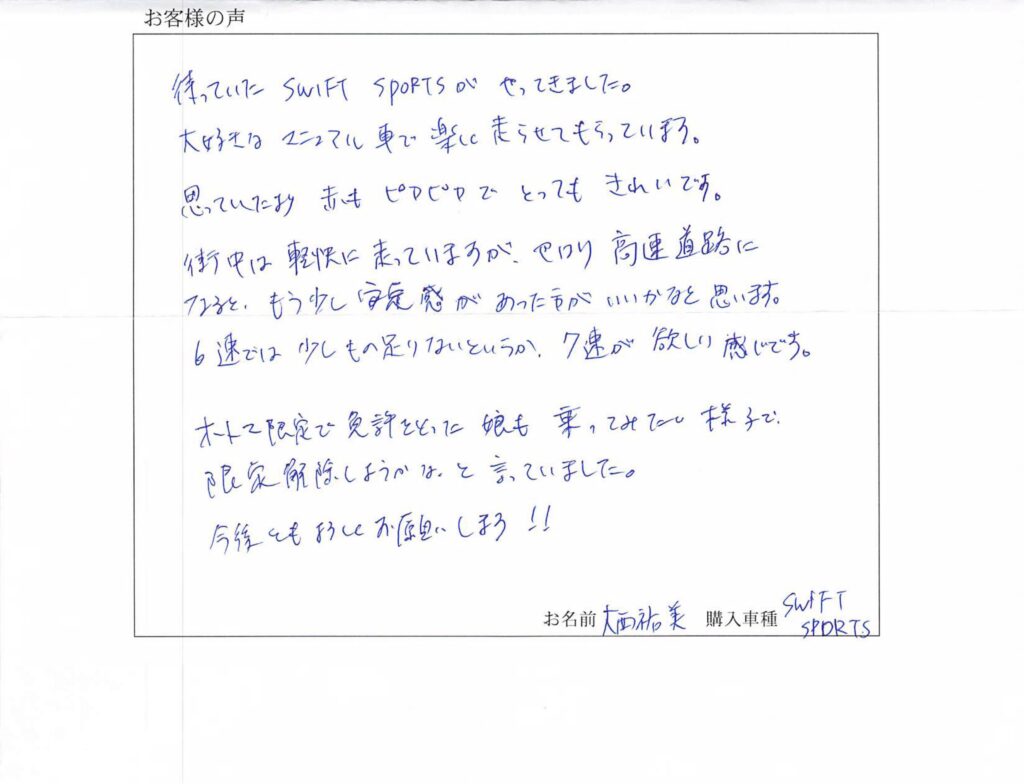 お客様の声
待っていた SWIFT SPORTSが やってきました。
大好きな マニュアル車で 楽しく 走らせてもらっています。
思っていたより 赤も ピカピカで とっても きれいです。
街中は 軽快に 走っていますが、やはり 高速道路に
なると、もう少し 安定感が あった方が いいかなと 思います。
6速では 少しもの足りないというか、7速が 欲しい 感じです。
オートマ限定で 免許をとった 娘も 乗ってみたい 様子で、
限定解除しようかな、と 言っていました。
今後とも よろしく お願いします!!
お名前 大西祐美 購入車種 SWIFT
SPORTS